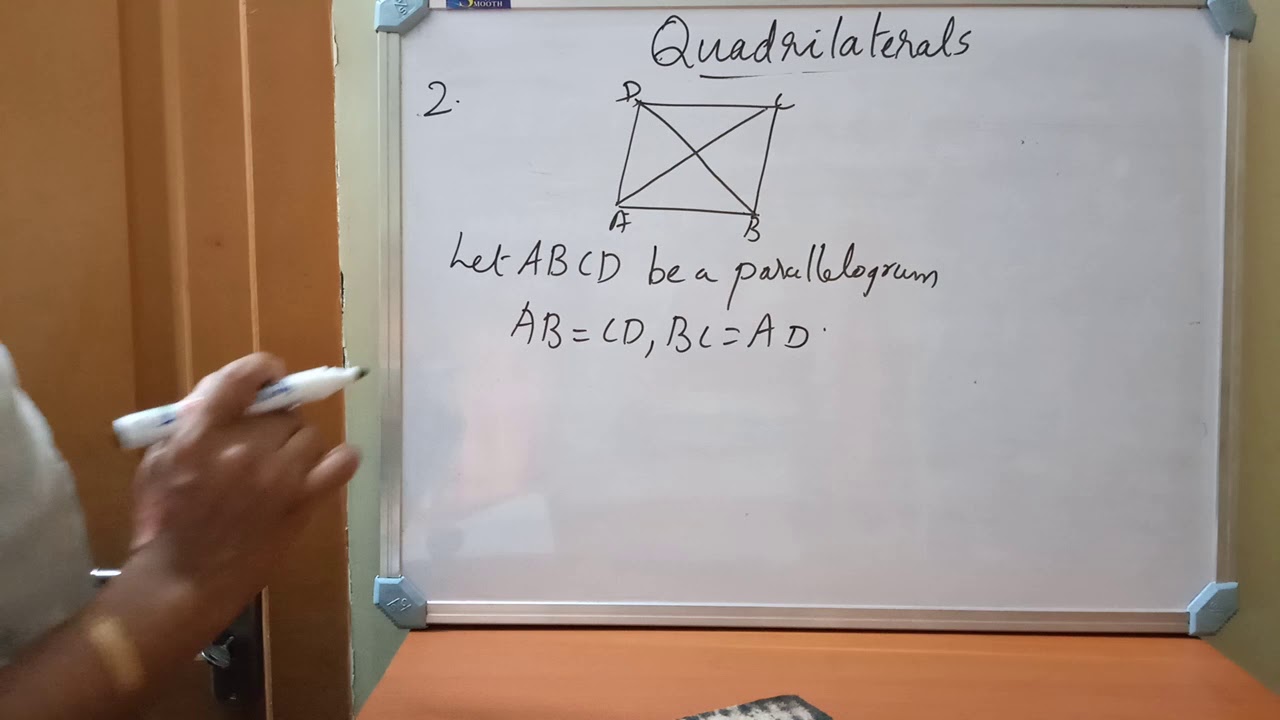 SMOOTH
Quadrilaterals
2.
D C
A B
Let ABCD be a parallelogram
AB = CD, BC = AD.